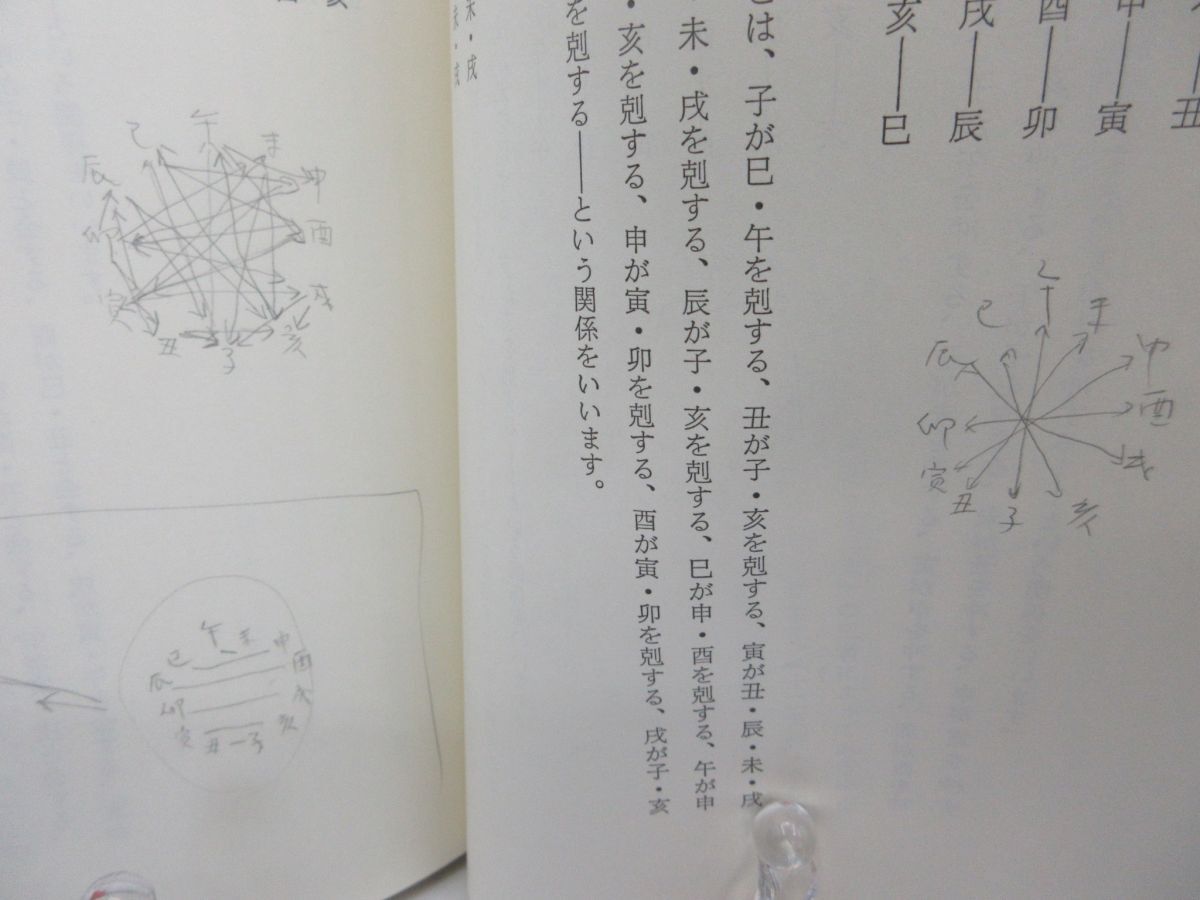 丑
申――寅
酉――卯
戌――辰
亥――巳
午
未
申
酉
戌
亥
子
丑
寅
卯
辰
巳
は、子が巳・午を剋する、丑が子・亥を剋する、寅が丑・辰・未・戌
・未・戌を剋する、辰が子・亥を剋する、巳が申・酉を剋する、午が申
・亥を剋する、申が寅・卯を剋する、酉が寅・卯を剋する、戌が子・亥
を剋する――という関係をいいます。
未・戌
未・亥
午
未
申
酉
戌
亥
子
丑
寅
卯
辰
巳
午 未
巳 申
辰 酉
卯 戌
寅 亥
丑 子